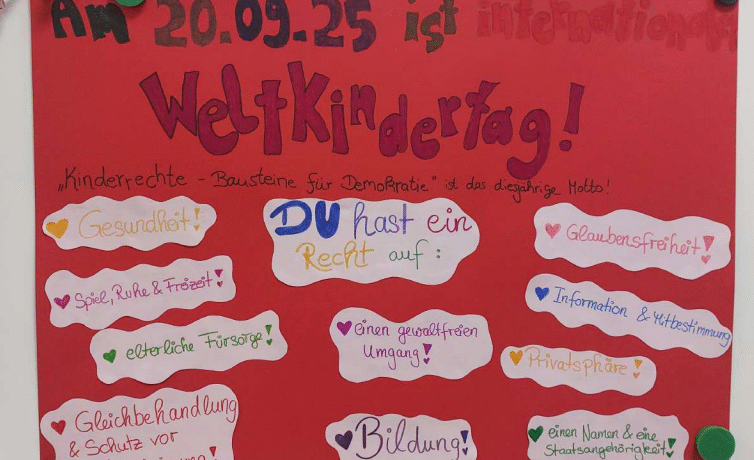 Am 20.09.25 ist internationaler
Weltkindertag!
„Kinderrechte - Bausteine für Demokratie" ist das diesjährige Motto!
Gesundheit!
DU hast ein
Recht auf:
Glaubensfreiheit!
Spiel, Ruhe & Freizeit!
Information & Mitbestimmung
elterliche Fürsorge!
einen gewaltfreien
Umgang!
Privatsphäre!
Gleichbehandlung
& Schutz vor
Bildung!
einen Namen & eine
Staatsangehörigkeit!